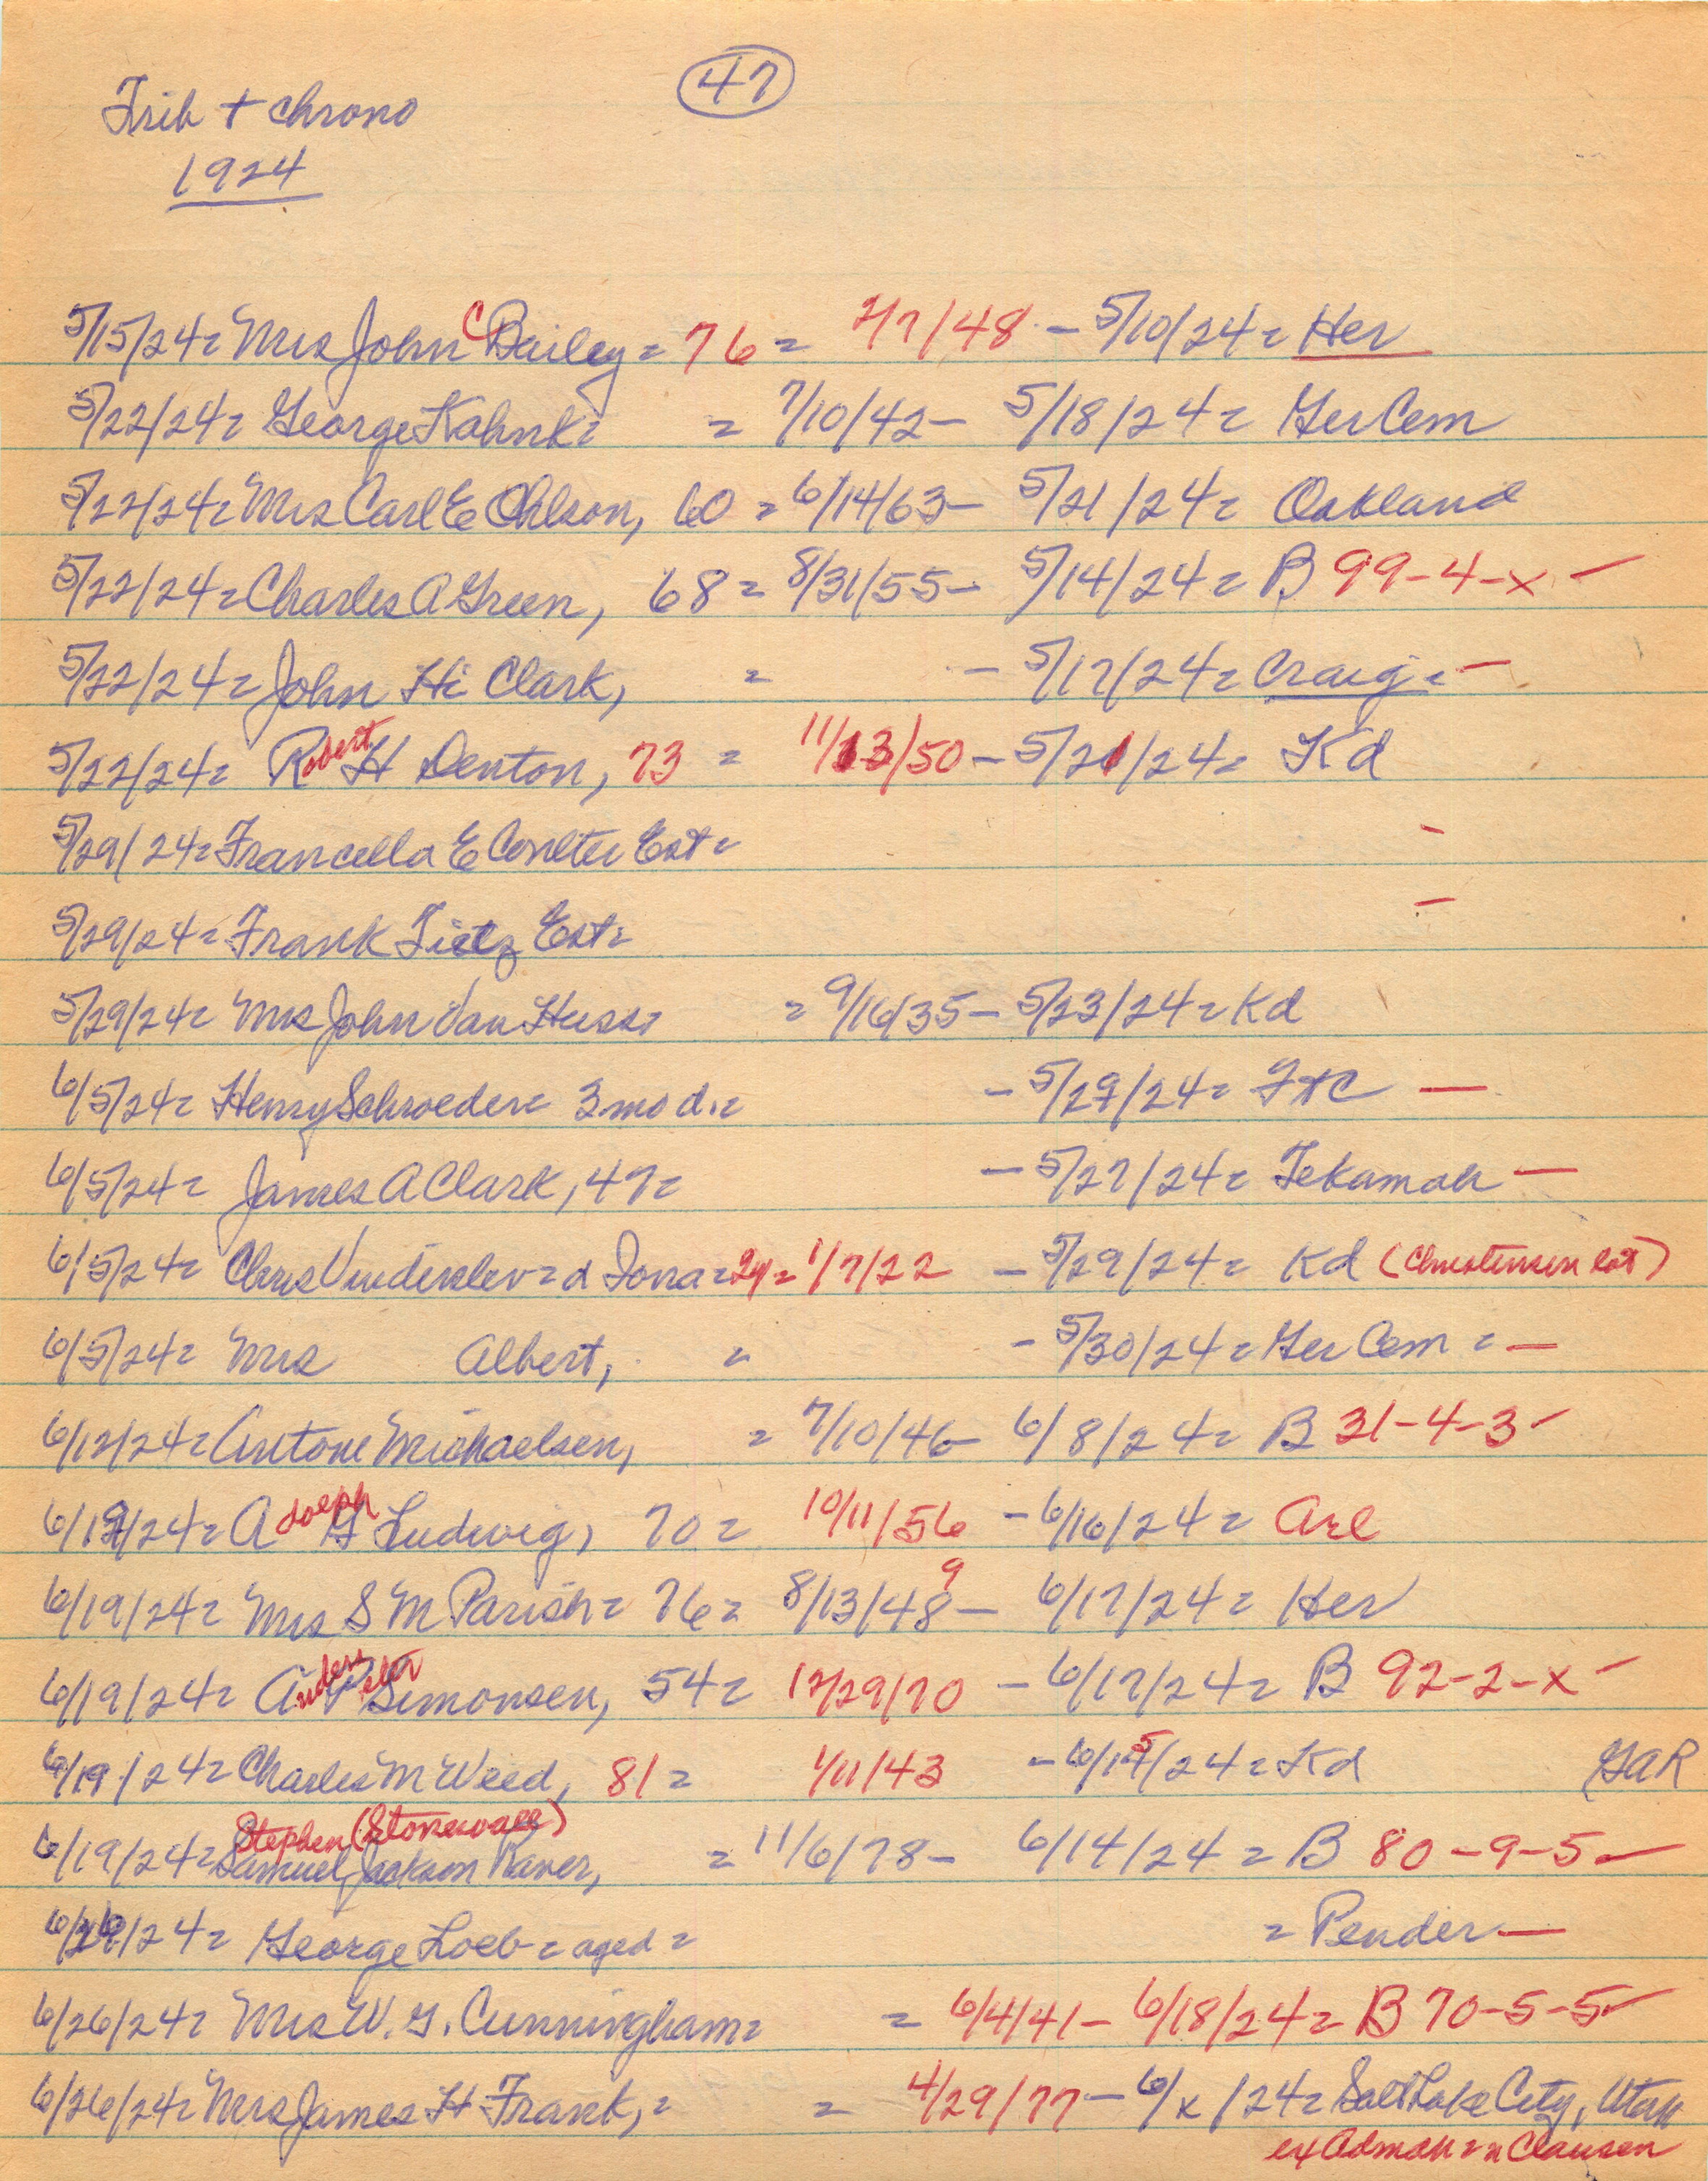 47
Trib + chrono
1924
5/15/24= Mrs John C Bailey = 76 = 2/7/48 - 5/10/24= Her
5/22/24= George Kahnk= = 7/10/42- 5/18/24= Ger Cem
5/22/24= Mrs Carl E Ohlson, 60 = 6/14/63- 5/21/24= Oakland
5/22/24= Charles A Green, 68= 8/31/55- 5/14/24= B 99-4-x -
5/22/24= John Hi Clark, = - 5/17/24= Craig= -
5/22/24= Robert H Denton, 73 = 11/13/50-5/21/24= Kd
5/29/24= Francella E Coulter Est= -
5/29/24= Frank Tietz Est= -
5/29/24= Mrs John Van Huss= = 9/16/35- 5/23/24= Kd
6/5/24= Henry Schroeder= 3 mo d.= - 5/29/24= T+C —
6/5/24= James A Clark, 47= - 5/27/24= Tekamah —
6/5/24= Chris Vinderslev= d Iona =2y= 1/7/22 - 5/29/24= Kd (Christensen lot)
6/5/24= Mrs Albert, = - 5/30/24= Ger Cem = —
6/12/24= Antone Michaelsen, = 7/10/46- 6/8/24= B 31-4-3 -
6/19/24= Adolph G Ludwig, 70= 10/11/56 - 6/16/24= Arl
9
6/19/24= Mrs S M Parish= 76= 8/13/48- 6/17/24= Her
6/19/24= Anders Peter Simonsen, 54= 12/29/70 - 6/17/24= B 92-2-x -
6/19/24= Charles M Weed, 81= 1/11/43 - 6/15/24= Kd GAR
Stephen (Stonewall)
6/19/24= Samuel Jackson Raver, = 11/6/78- 6/14/24= B 80-9-5 —
6/26/24= George Loeb= aged= = Pender —
6/26/24= Mrs W. G. Cunningham= = 6/4/41- 6/18/24= B 70-5-5 -
6/26/24= Mrs James H Frank, = = 4/29/77- 6/x/24= Salt Lake City, Utah
ex Admah = n Clausen